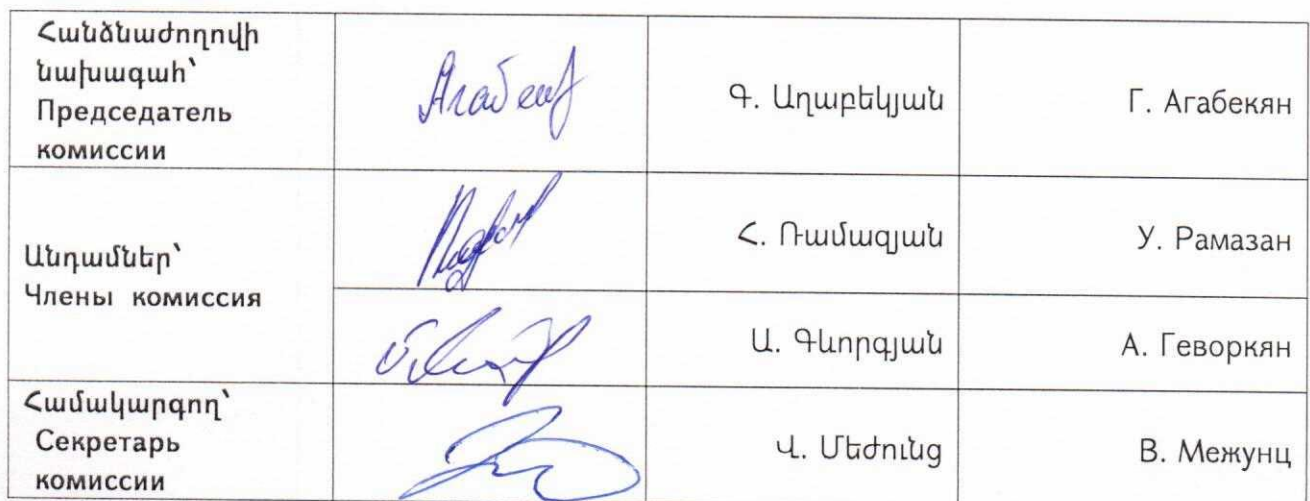 Հանձնաժողովի
նախագահ՝
Председатель
комиссии
Գ. Աղաբեկյան
Г. Агабекян
Անդամներ՝
Члены комиссия
Հ. Ռամազյան
У. Рамазан
Ա. Գևորգյան
А. Геворкян
Համակարգող՝
Секретарь
комиссии
Վ. Մեժունց
В. Межунц